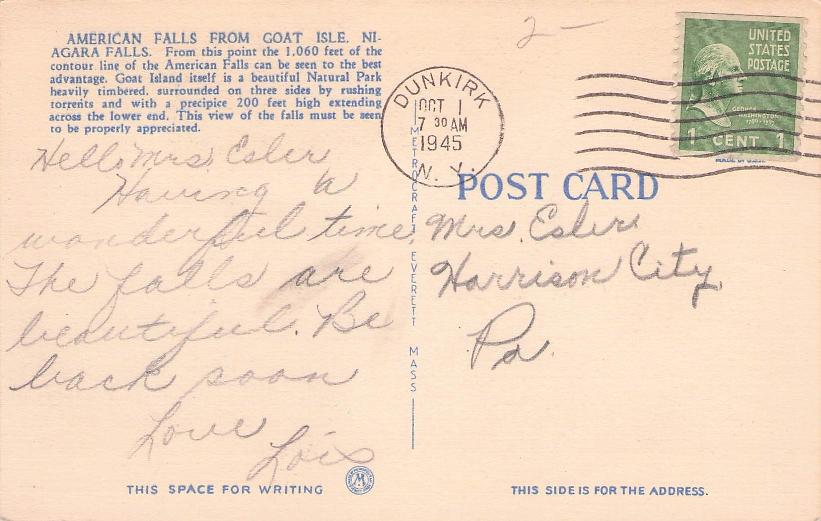 AMERICAN FALLS FROM GOAT ISLE, NI-
AGARA FALLS. From this point the 1,060 feet of the
contour line of the American Falls can be seen to the best
advantage. Goat Island itself is a beautiful Natural Park
heavily timbered, surrounded on three sides by rushing
torrents and with a precipice 200 feet high extending
across the lower end. This view of the falls must be seen
to be properly appreciated.
Hello Mrs. Esler
Having a
wonderful time.
The falls are
beautiful. Be
back soon
Love
Lois
THIS SPACE FOR WRITING
M
METROCRAFT EVERETT MASS
2-
DUNKIRK
OCT 1
7 30 AM
1945
N. Y.
UNITED
STATES
POSTAGE
GEORGE
WASHINGTON
1789-1797
1 CENT 1
MADE IN U.S.A.
POST CARD
Mrs. Esler
Harrison City,
Pa.
THIS SIDE IS FOR THE ADDRESS.